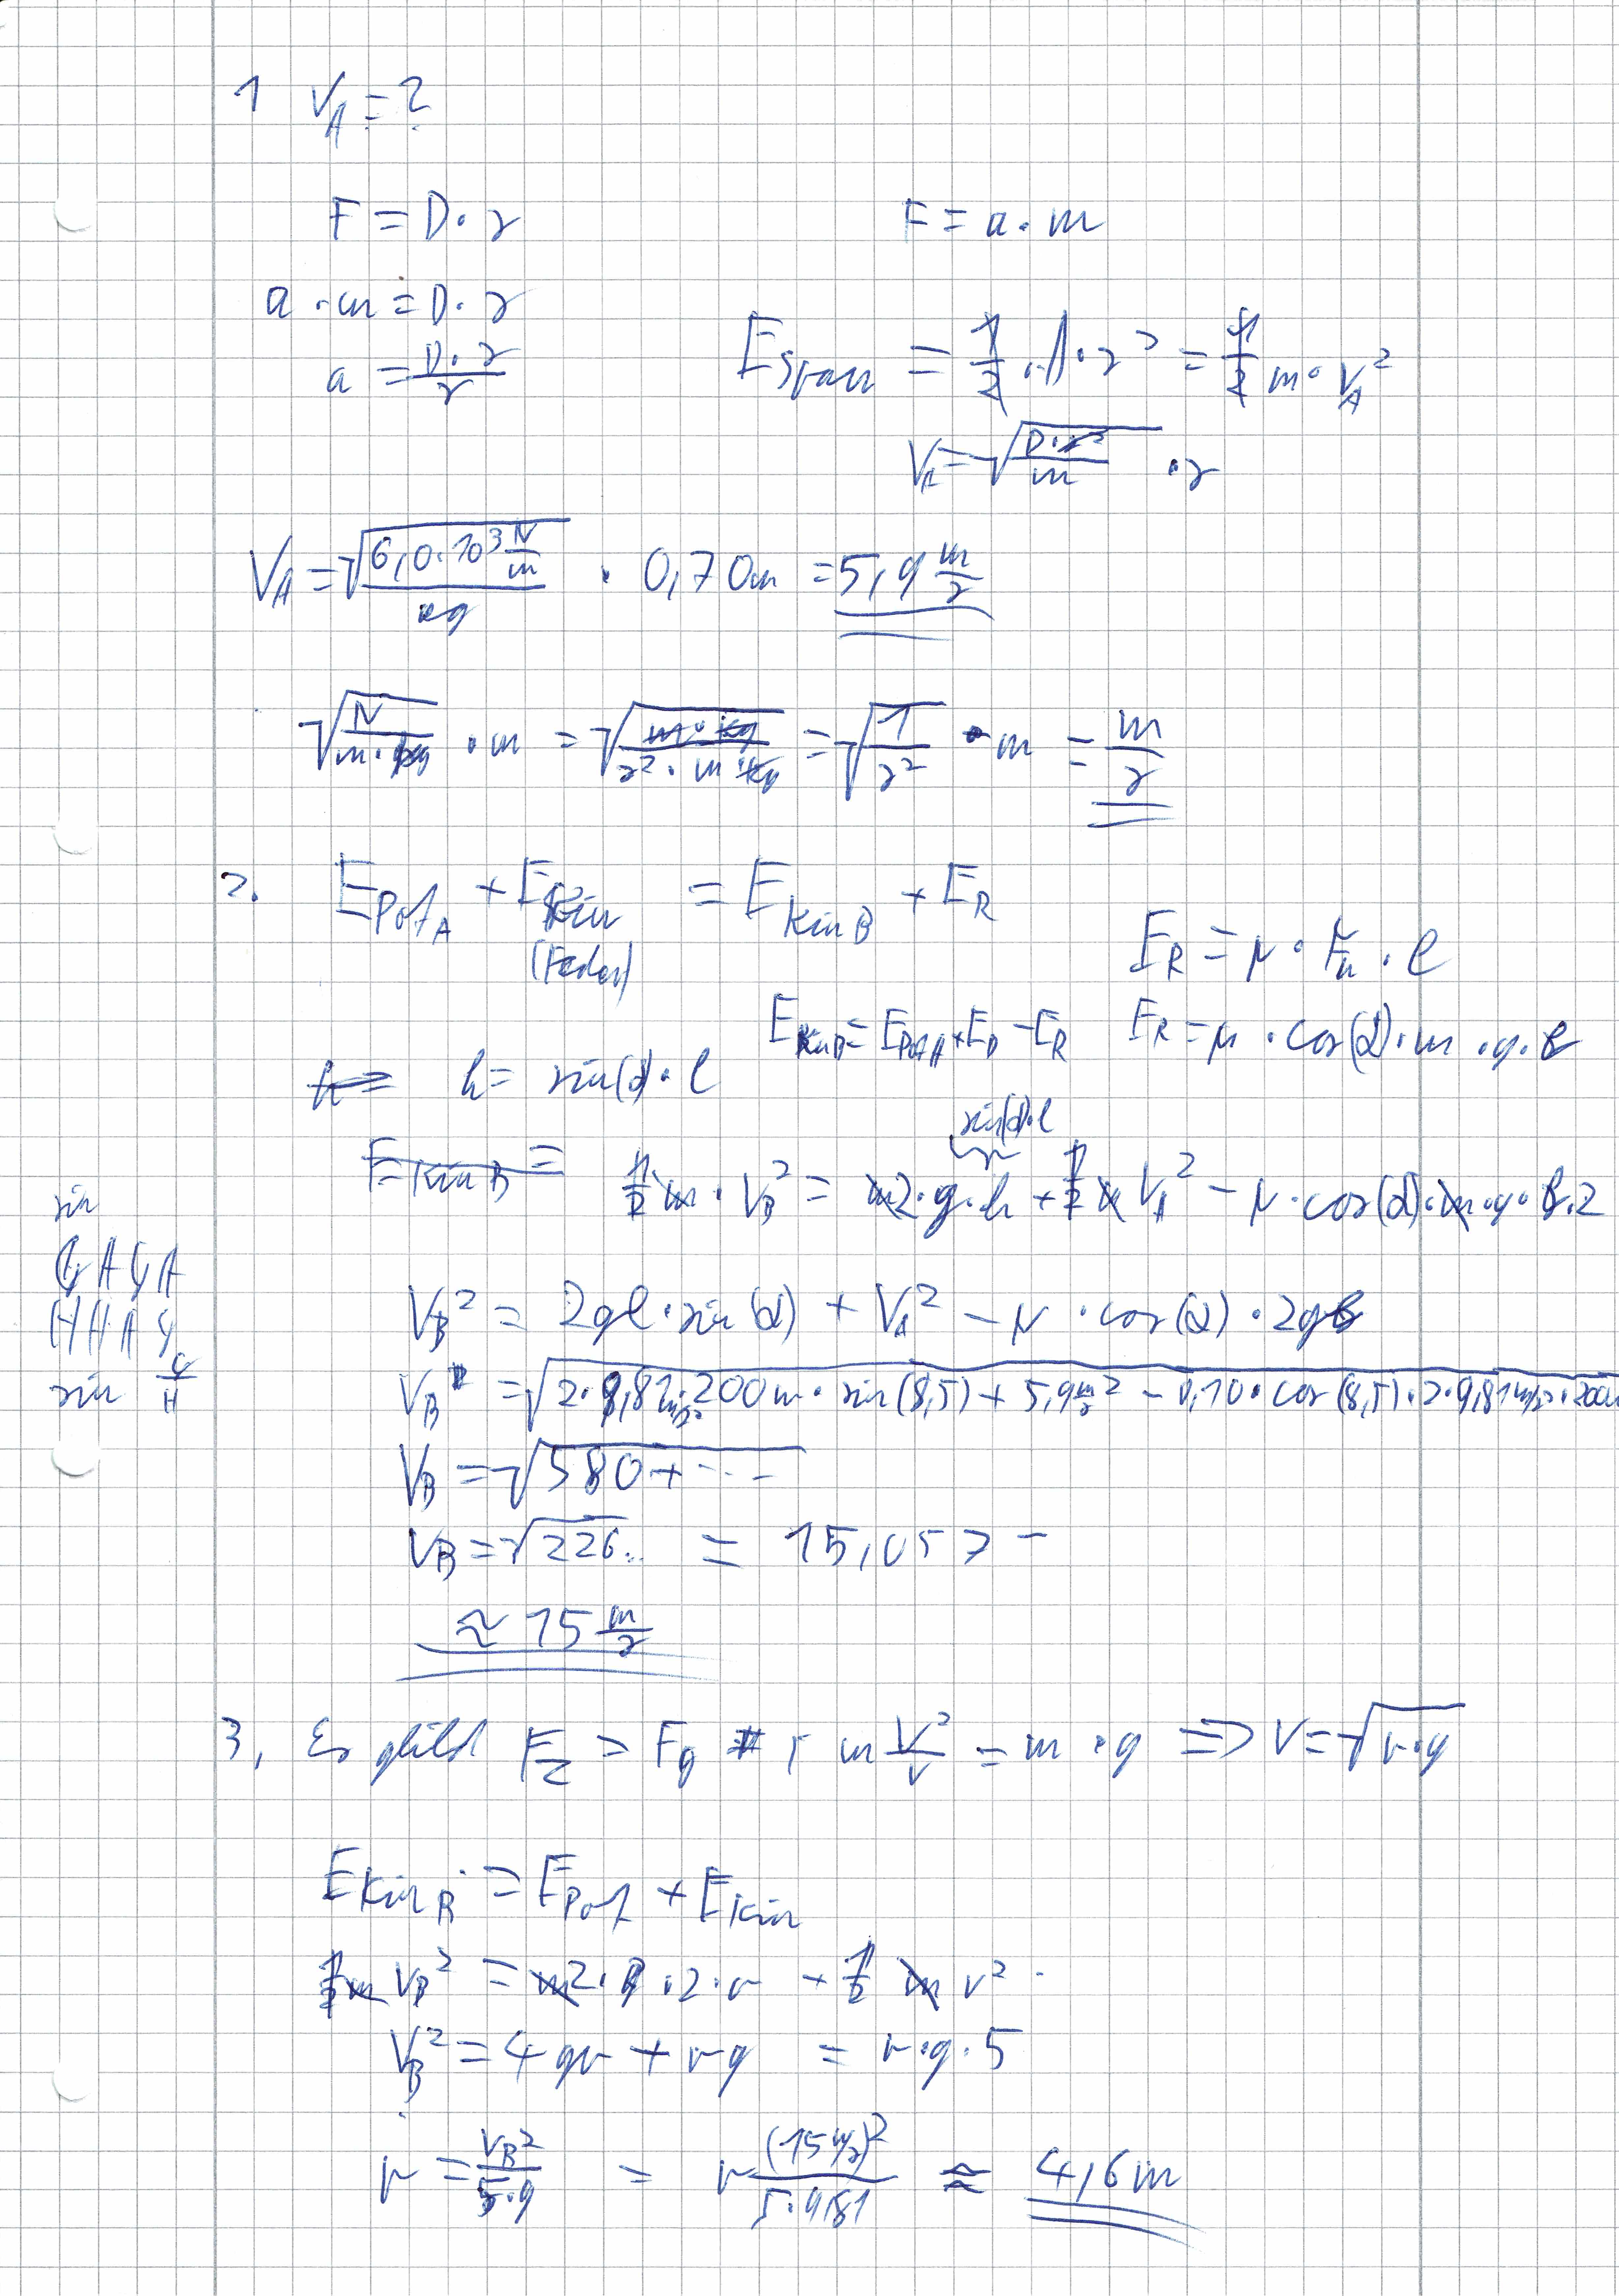 1 V_A = ?
F = D · s F = a · m
a · m = D · s
a = D · s / s
E_Span = 1/2 · D · s² = 1/2 m · V_A²
V_A = √(D · s² / m) · s
V_A = √(6,0 · 10³ N/m / kg) · 0,70m = 5,9 m/s
√(N / m · kg) · m = √(m · kg / s² · m · kg) = √(1 / s²) · m = m/s
2. E_PotA + E_Kin = E_KinB + E_R
(Feder)
E_R = μ · F_n · l
E_KinB = E_PotA + E_D − E_R E_R = μ · cos(α) · m · g · l
h = h = sin(α) · l
sin(α) · l
E_KinB =
1/2 m · V_B² = m 2 · g · h + 1/2 m V_A² − μ · cos(α) · m · g · l · 2
sin
GAGA
HHAG
sin G/H
V_B² = 2gl · sin(α) + V_A² − μ · cos(α) · 2gl
V_B = √(2 · 9,81 m/s² · 200m · sin(8,5) + 5,9 m/s ² − 0,10 · cos(8,5) · 2 · 9,81 m/s² · 200m
V_B = √(580 + - - -
V_B = √226.. = 15,05
≈ 15 m/s
3. Es gild F_Z = F_g , m V²/r = m · g ⇒ V = √(r · g)
E_KinB = E_Pot + E_Kin
1/2 m V_B² = m 2 · g · 2 · r + 1/2 m v²
V_B² = 4gr + rg = r · g · 5
r = V_B² / 5 · g = r (15 m/s)² / 5 · 9,81 ≈ 4,6 m